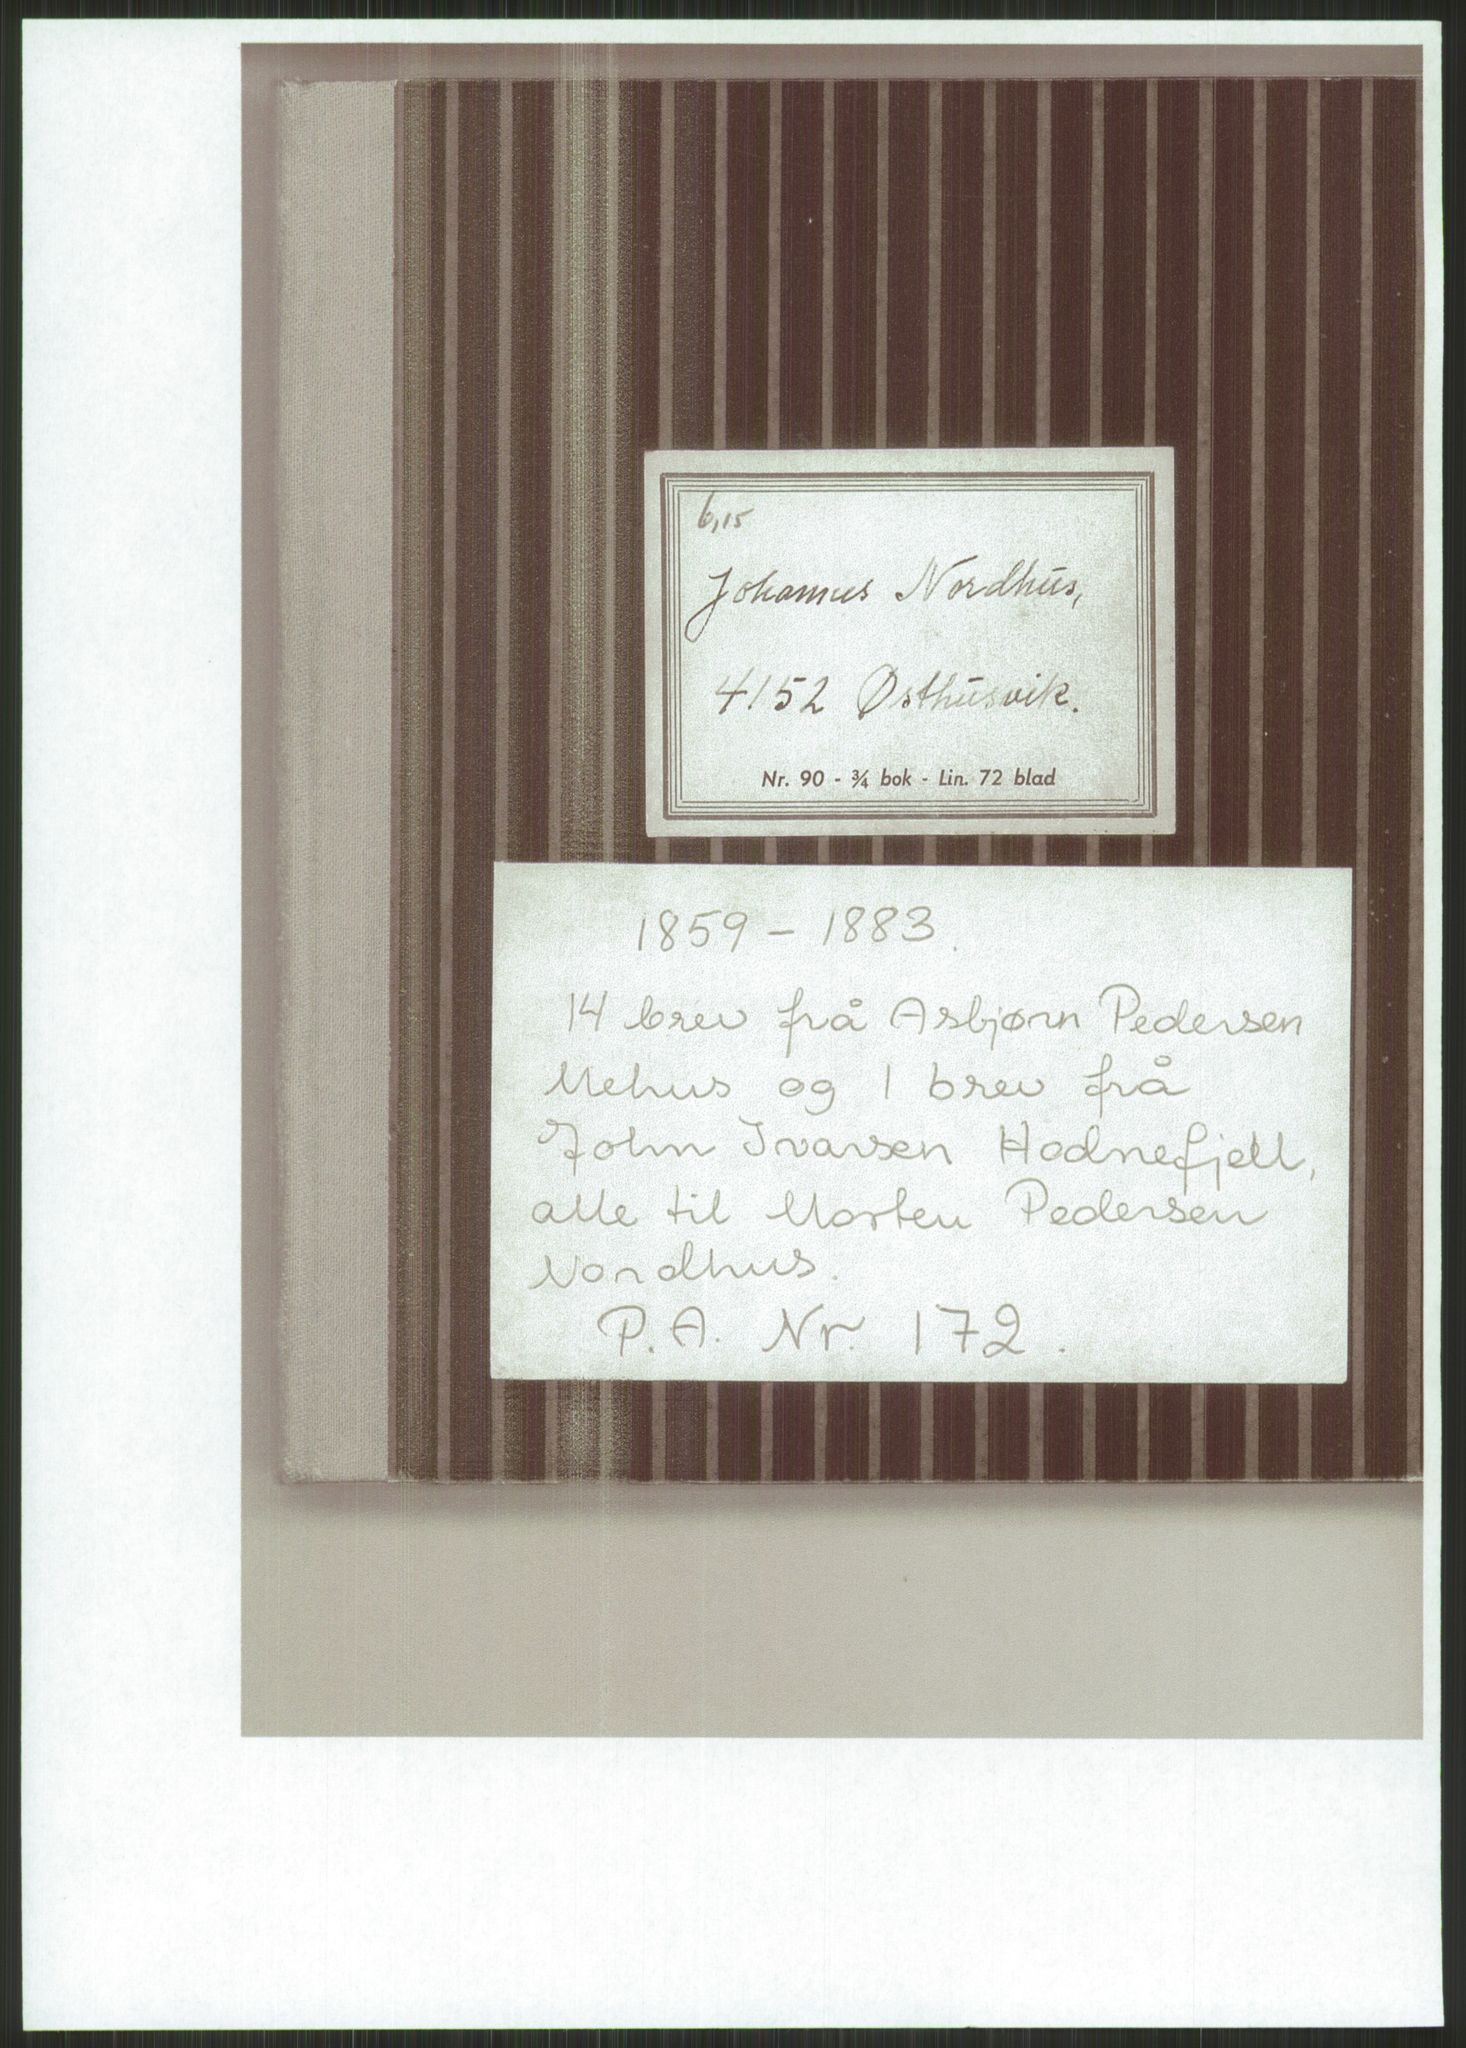 6,15
Johannes Nordhus,
4152 Østhusvik.
Nr. 90 - ¾ bok - Lin. 72 blad
1859 - 1883.
14 brev frå Asbjørn Pedersen
Mehus og 1 brev frå
John Ivarsen Hodnefjell,
alle til Morten Pedersen
Nordhus.
P.A. Nr. 172.